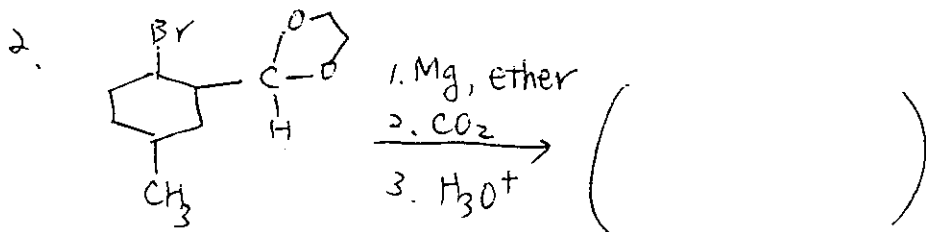 2.
Br
O
C-O
H
CH3
1. Mg, ether
2. CO2
3. H3O+
( )